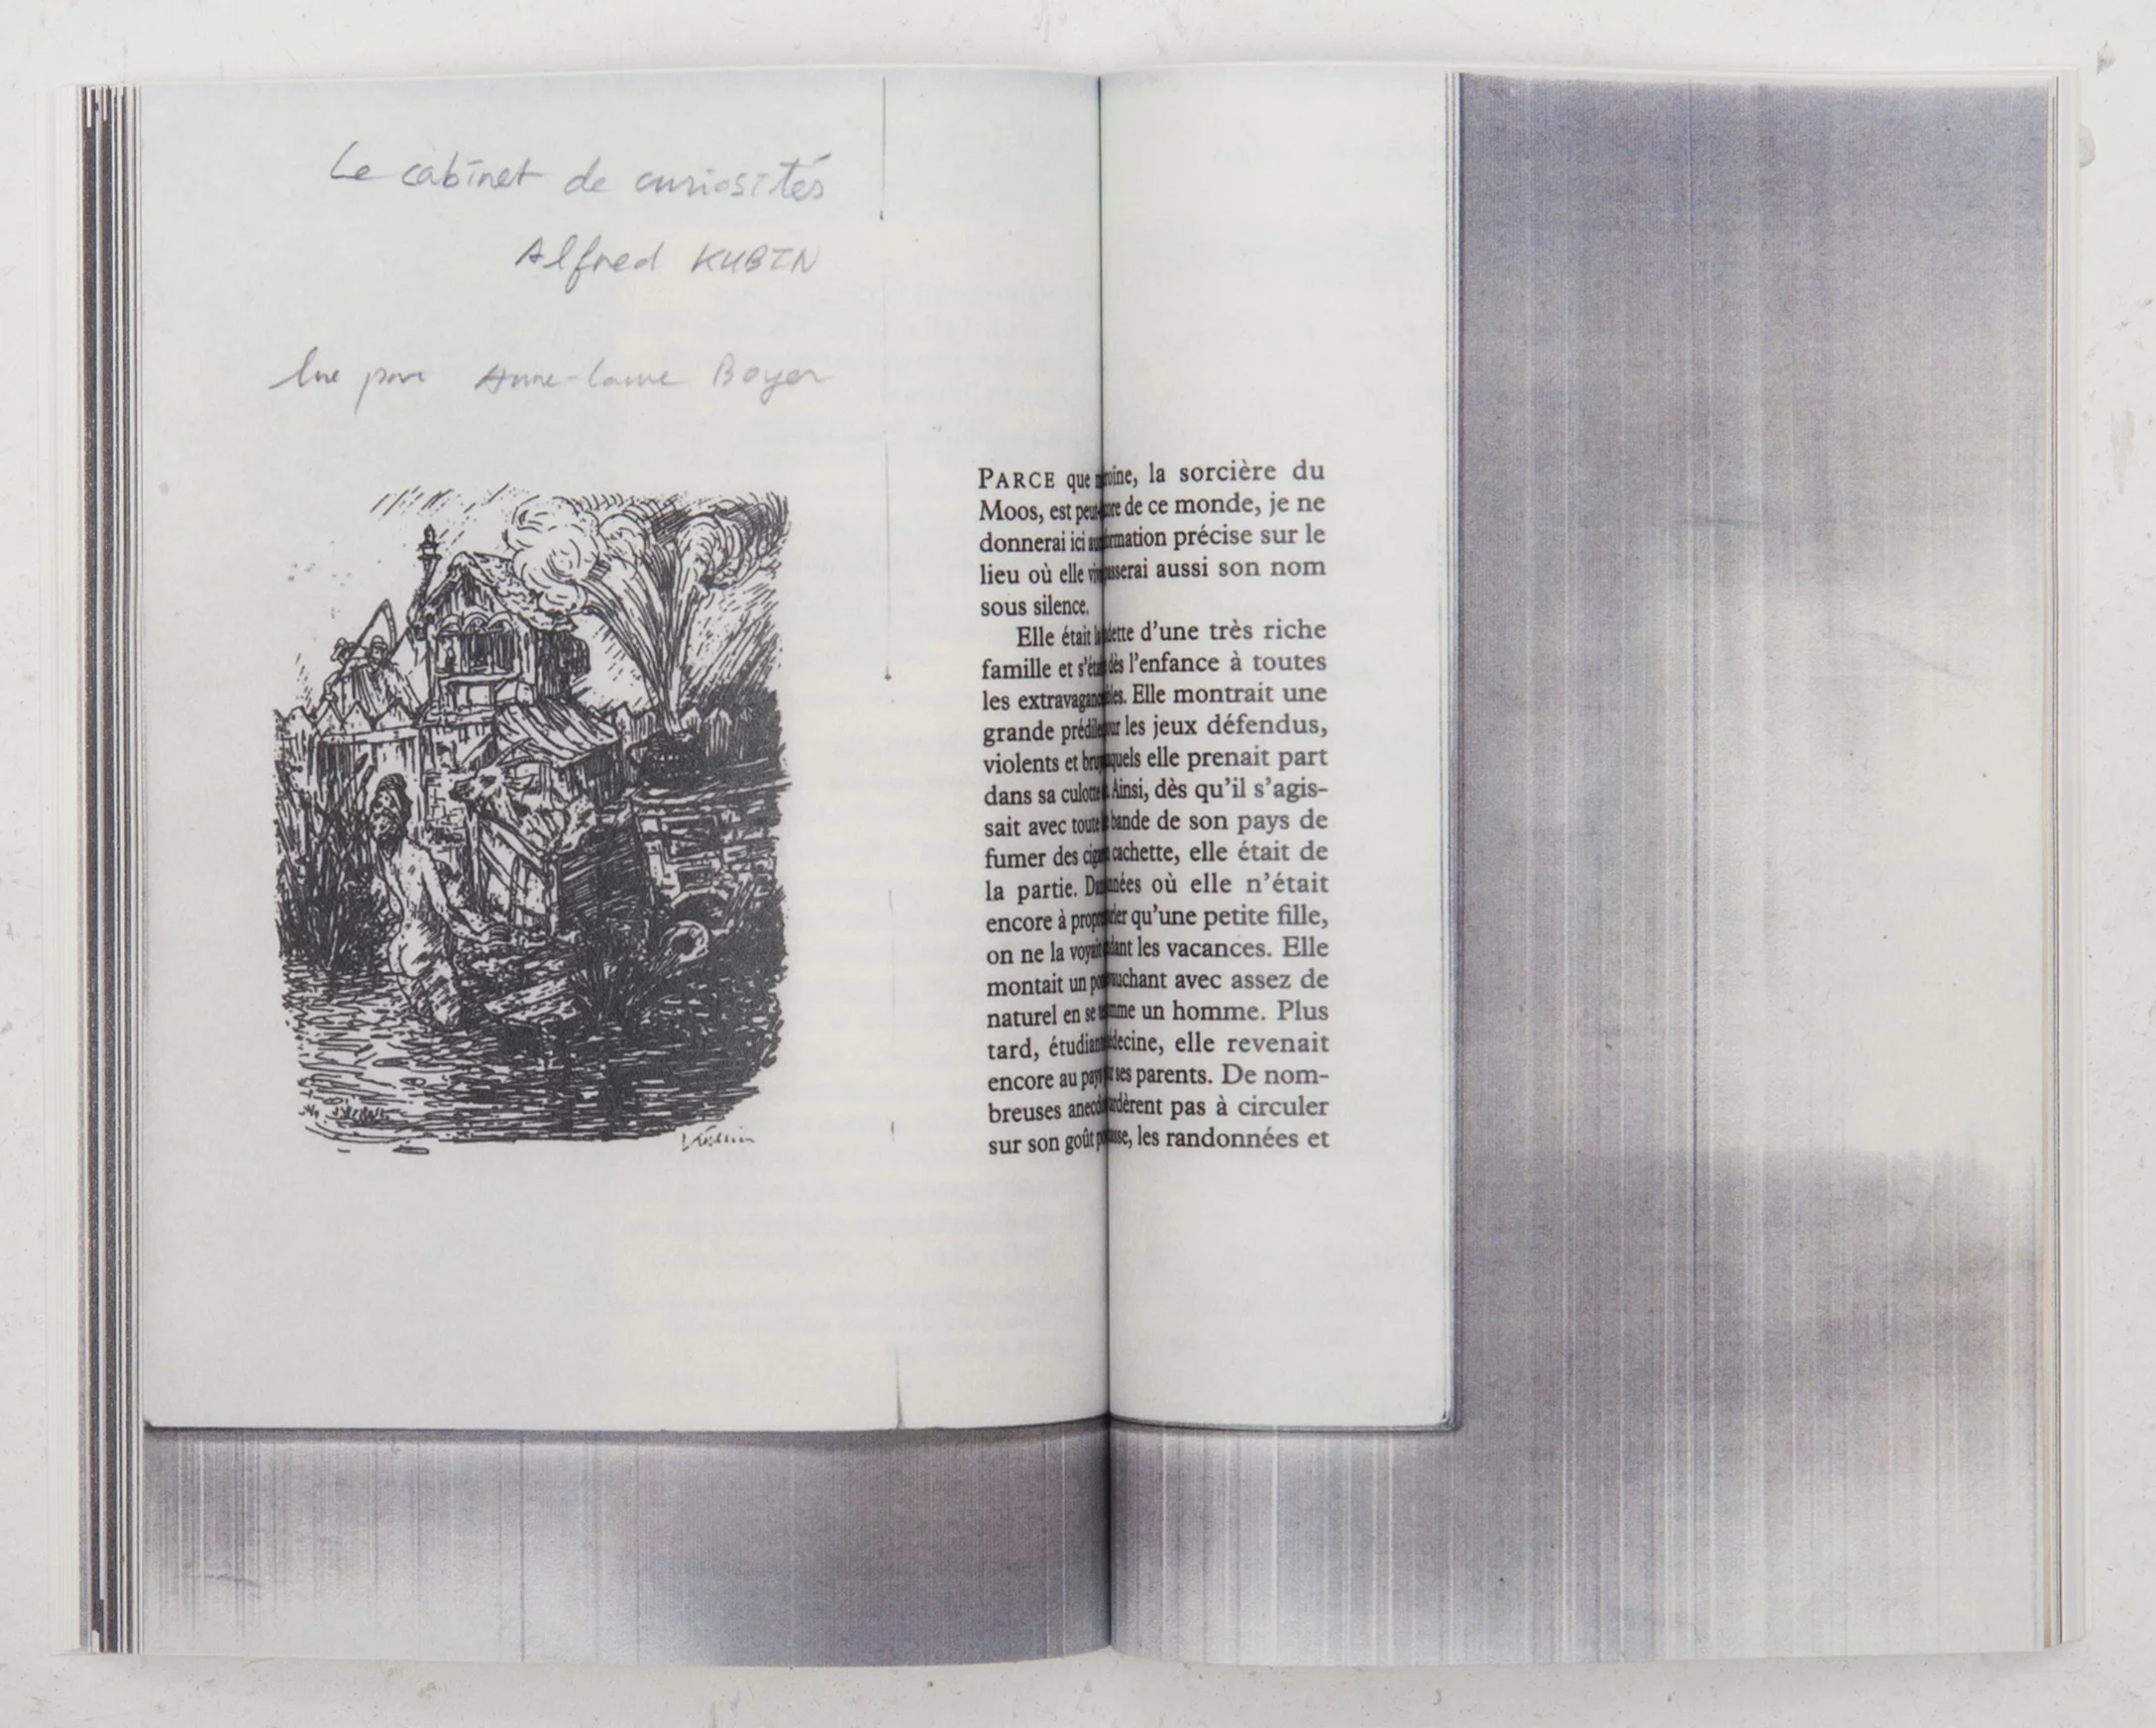 Le cabinet de curiosités
Alfred KUBIN
lue par Anne-Laure Boyer
Kubin
PARCE que oine, la sorcière du
Moos, est peut- re de ce monde, je ne
donnerai ici rmation précise sur le
lieu où elle sserai aussi son nom
sous silence.
Elle était dette d'une très riche
famille et s'ét dès l'enfance à toutes
les extravaganc bles. Elle montrait une
grande prédile ur les jeux défendus,
violents et bru quels elle prenait part
dans sa culotte Ainsi, dès qu'il s'agis-
sait avec toute bande de son pays de
fumer des ciga cachette, elle était de
la partie. Da nnées où elle n'était
encore à prop rler qu'une petite fille,
on ne la voyait dant les vacances. Elle
montait un po uchant avec assez de
naturel en se mme un homme. Plus
tard, étudian decine, elle revenait
encore au pay ses parents. De nom-
breuses anecdo rdèrent pas à circuler
sur son goût p sse, les randonnées et